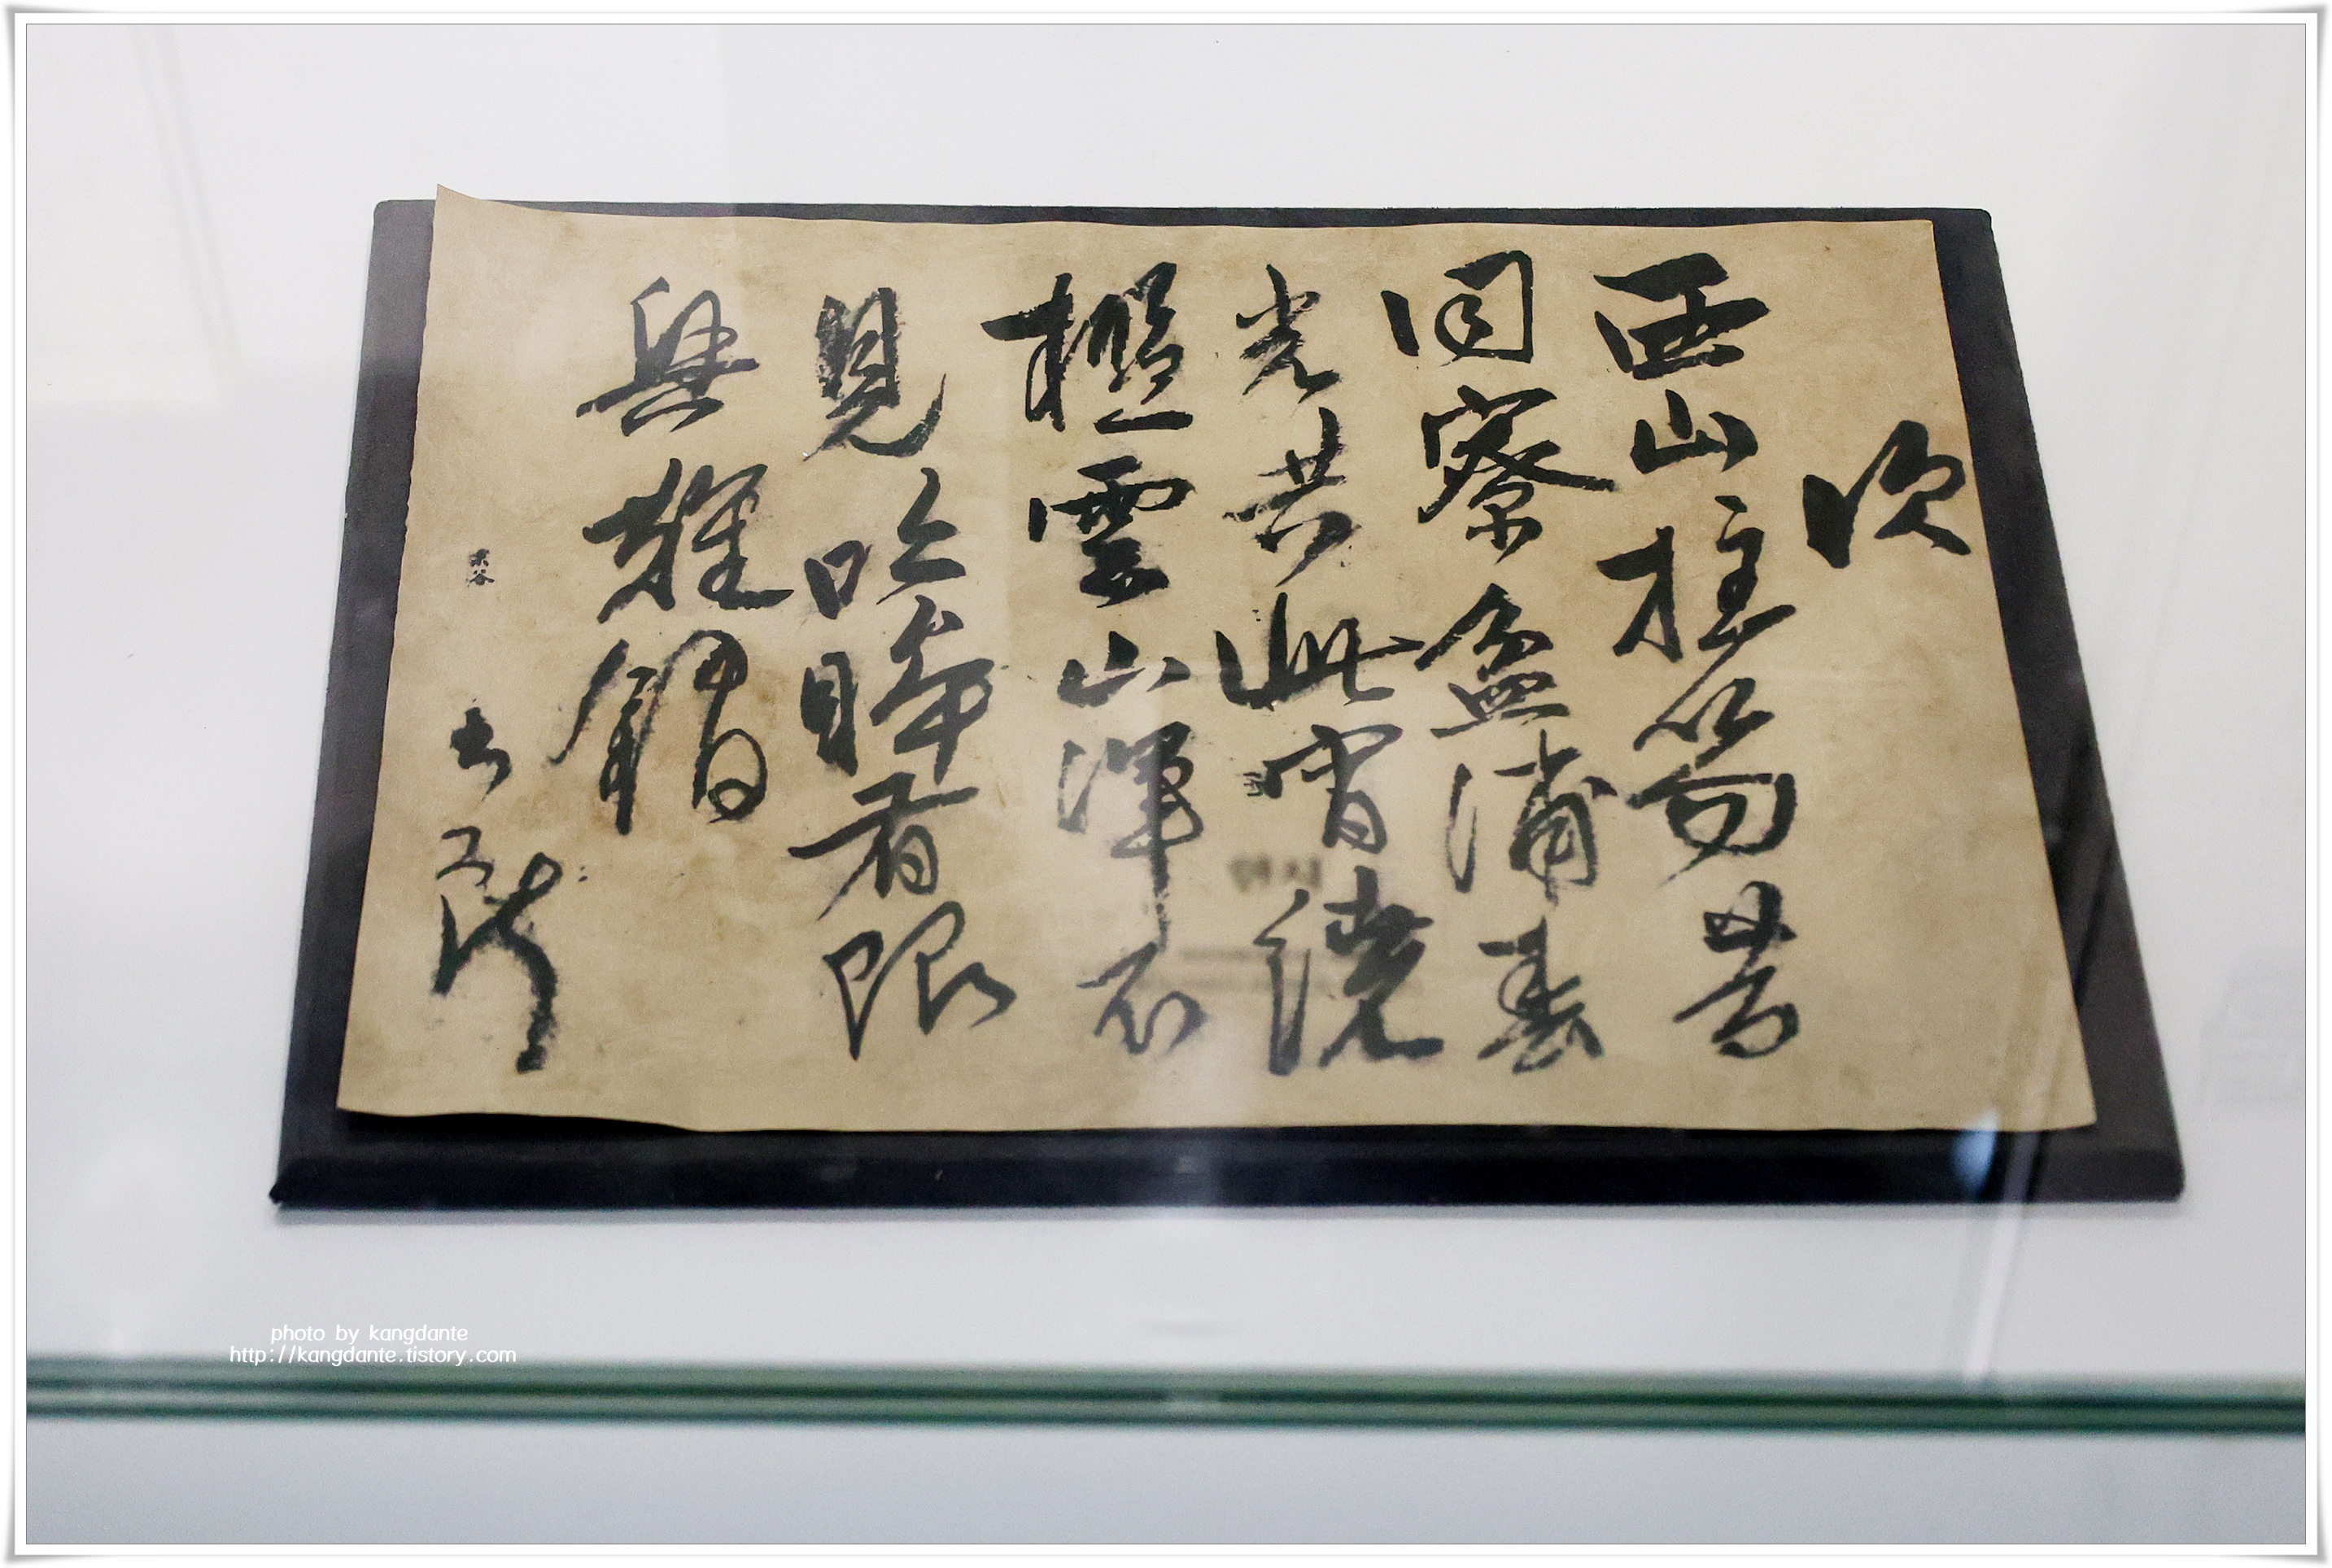 次
西山拄笏昔
同寮盈浦春
光共此宵繞
檻雲山渾不
見吟眸看眼
與難
栗谷
photo by kangdante
http://kangdante.tistory.com